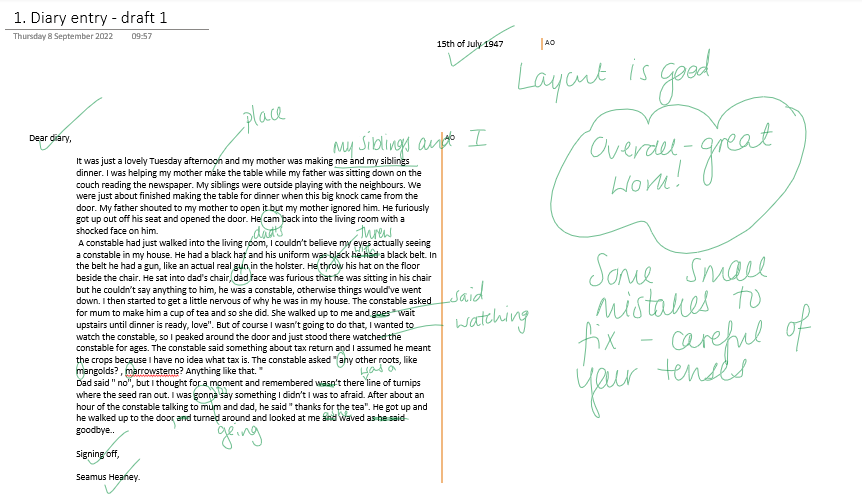 1. Diary entry - draft 1
Thursday 8 September 2022 09:57
15th of July 1947
AO
Layout is good
Dear diary,
place
AO
my siblings and I
Overall - great
work!
It was just a lovely Tuesday afternoon and my mother was making me and my siblings
dinner. I was helping my mother make the table while my father was sitting down on the
couch reading the newspaper. My siblings were outside playing with the neighbours. We
were just about finished making the table for dinner when this big knock came from the
door. My father shouted to my mother to open it but my mother ignored him. He furiously
got up out off his seat and opened the door. He cam back into the living room with a
shocked face on him.
dad's
threw
A constable had just walked into the living room, I couldn't believe my eyes actually seeing
a constable in my house. He had a black hat and his uniform was black he had a black belt. In
the belt he had a gun, like an actual real gun in the holster. He throw his hat on the floor
beside the chair. He sat into dad's chair, dad face was furious that he was sitting in his chair
but he couldn't say anything to him, he was a constable, otherwise things would've went
down. I then started to get a little nervous of why he was in my house. The constable asked
for mum to make him a cup of tea and so she did. She walked up to me and goes " wait
upstairs until dinner is ready, love". But of course I wasn't going to do that, I wanted to
watch the constable, so I peaked around the door and just stood there watched the
constable for ages. The constable said something about tax return and I assumed he meant
the crops because I have no idea what tax is. The constable asked "any other roots, like
mangolds? , marrowstems? Anything like that. "
said
watching
was a
Dad said " no", but I thought for a moment and remembered wasn't there line of turnips
where the seed ran out. I was gonna say something I didn't I was to afraid. After about an
hour of the constable talking to mum and dad, he said " thanks for the tea". He got up and
he walked up to the door and turned around and looked at me and waved as he said
goodbye..
going
Some small
mistakes to
fix - careful of
your tenses
Signing off,
Seamus Heaney.